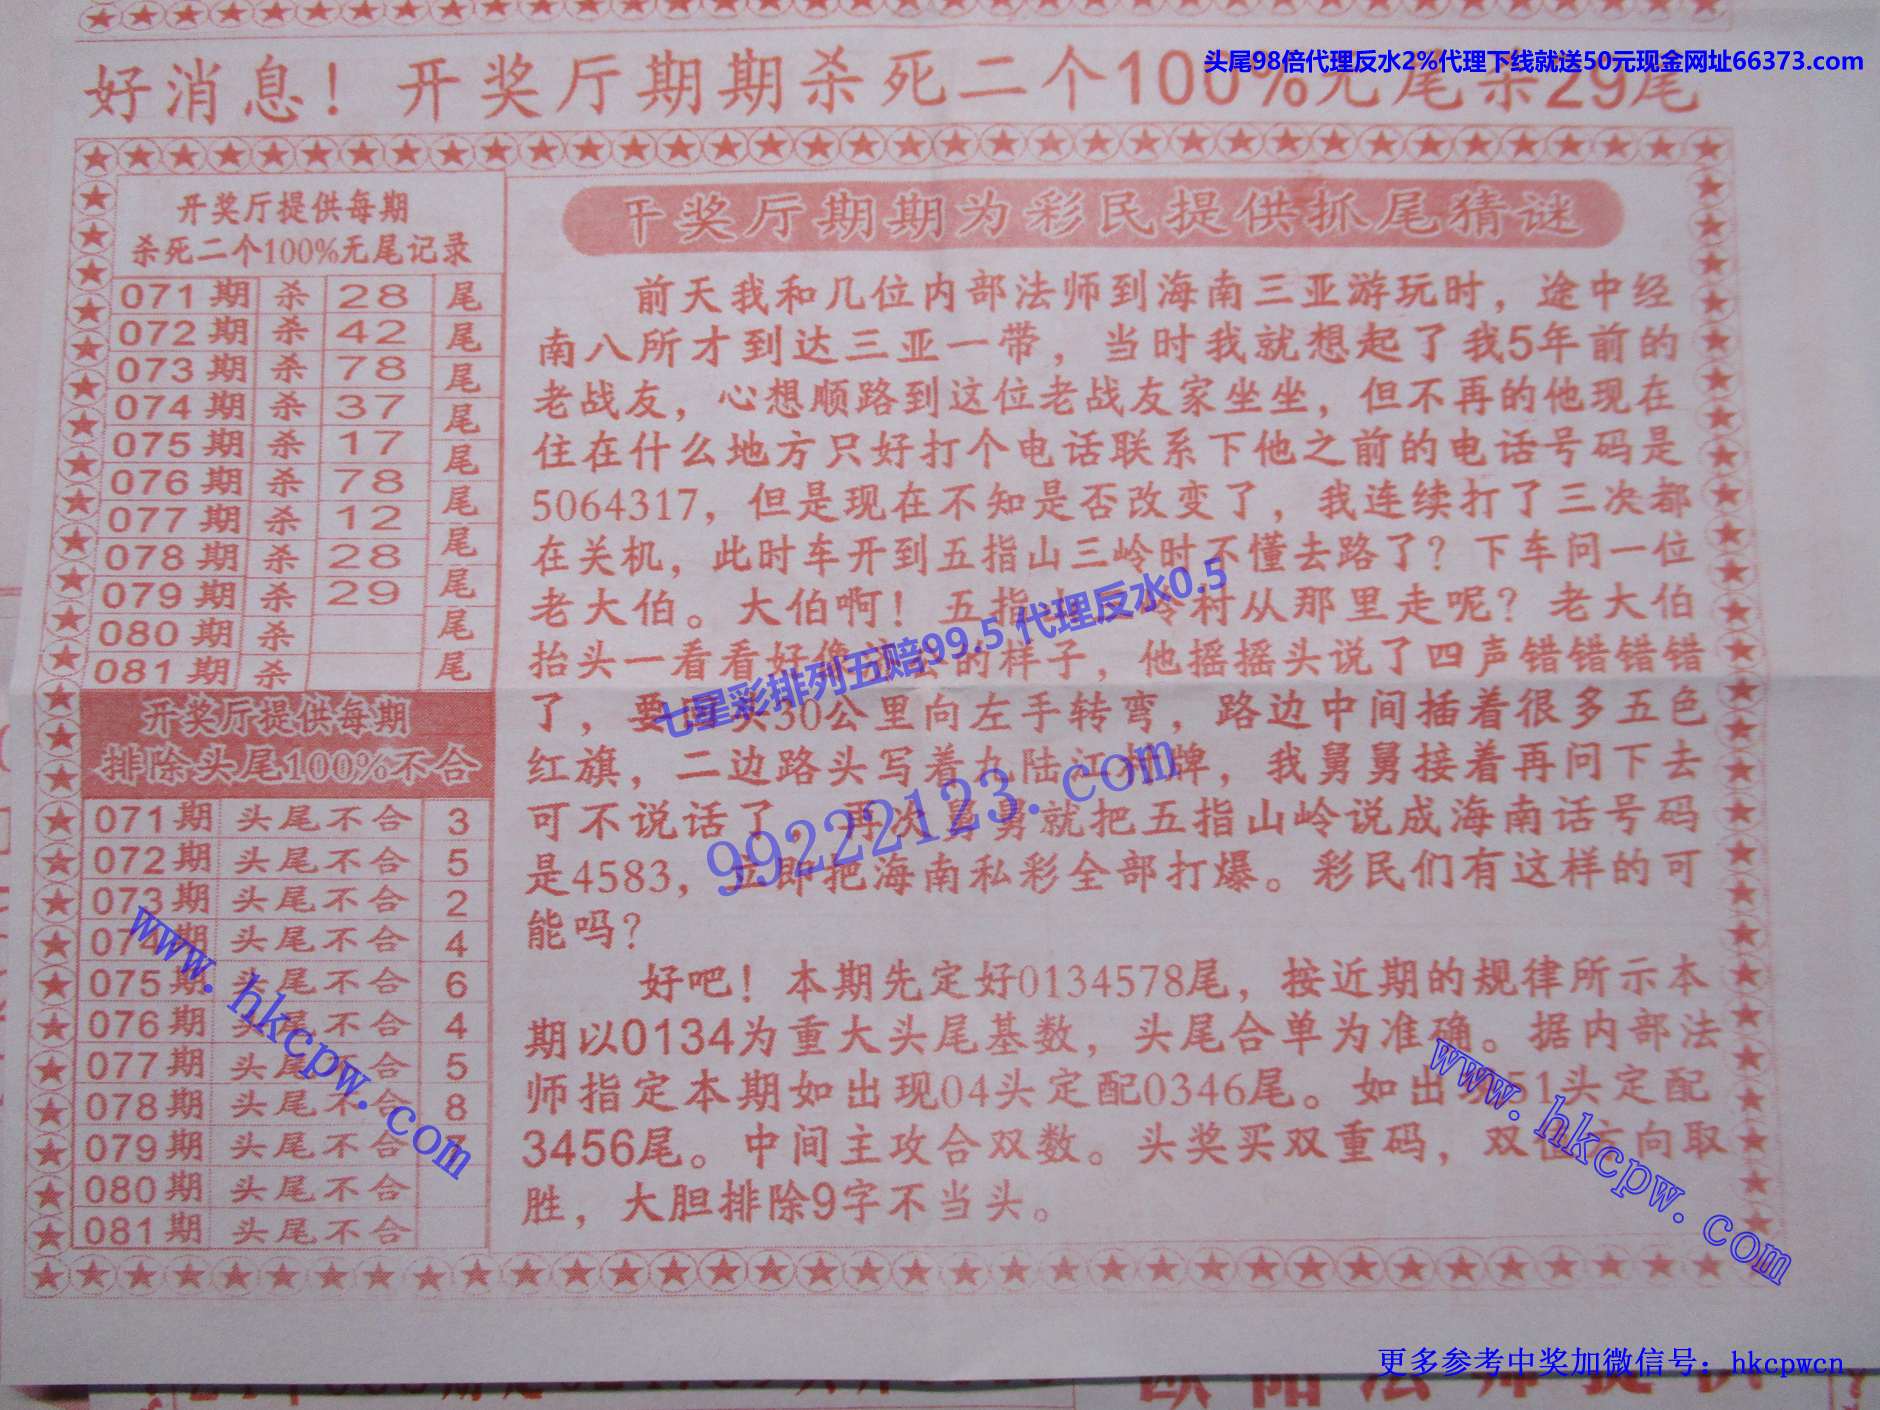 头尾98倍代理反水2%代理下线就送50元现金网址66373.com
好消息！开奖厅期期杀死二个100%无尾杀29尾
开奖厅提供每期
杀死二个100%无尾记录
071期 杀 28 尾
072期 杀 42 尾
073期 杀 78 尾
074期 杀 37 尾
075期 杀 17 尾
076期 杀 78 尾
077期 杀 12 尾
078期 杀 28 尾
079期 杀 29 尾
080期 杀 尾
081期 杀
开奖厅提供每期
排除头尾100%不合
071期 头尾不合 3
072期 头尾不合 5
073期 头尾不合 2
074期 头尾不合 4
075期 头尾不合 6
076期 头尾不合 4
077期 头尾不合 5
078期 头尾不合 8
079期 头尾不合
080期 头尾不合
081期 头尾不合
奖厅期期为彩民提供抓尾猜谜
前天我和几位内部法师到海南三亚游玩时，途中经
南八所才到达三亚一带，当时我就想起了我5年前的
老战友，心想顺路到这位老战友家坐坐，但不再的他现在
住在什么地方只好打个电话联系下他之前的电话号码是
5064317，但是现在不知是否改变了，我连续打了三次都
在关机，此时车开到五指山三岭时不懂去路了？下车问一位
老大伯。大伯啊！五指山三岭村从那里走呢？老大伯
抬头一看看好像的样子，他摇摇头说了四声错错错错
了，要头30公里向左手转弯，路边中间插着很多五色
红旗，二边路头写着九陆江村牌，我舅舅接着再问下去
可不说话了，再次舅舅就把五指山岭说成海南话号码
是4583，立即把海南私彩全部打爆。彩民们有这样的可
能吗？
好吧！本期先定好0134578尾，按近期的规律所示本
期以0134为重大头尾基数，头尾合单为准确。据内部法
师指定本期如出现04头定配0346尾。如出现51头定配
3456尾。中间主攻合双数。头奖买双重码，双位方向取
胜，大胆排除9字不当头。
七星彩排列五赔99.5 代理反水0.5
99222123.com
www.hkcpw.com
www.hkcpw.com
更多参考中奖加微信号：hkcpwcn